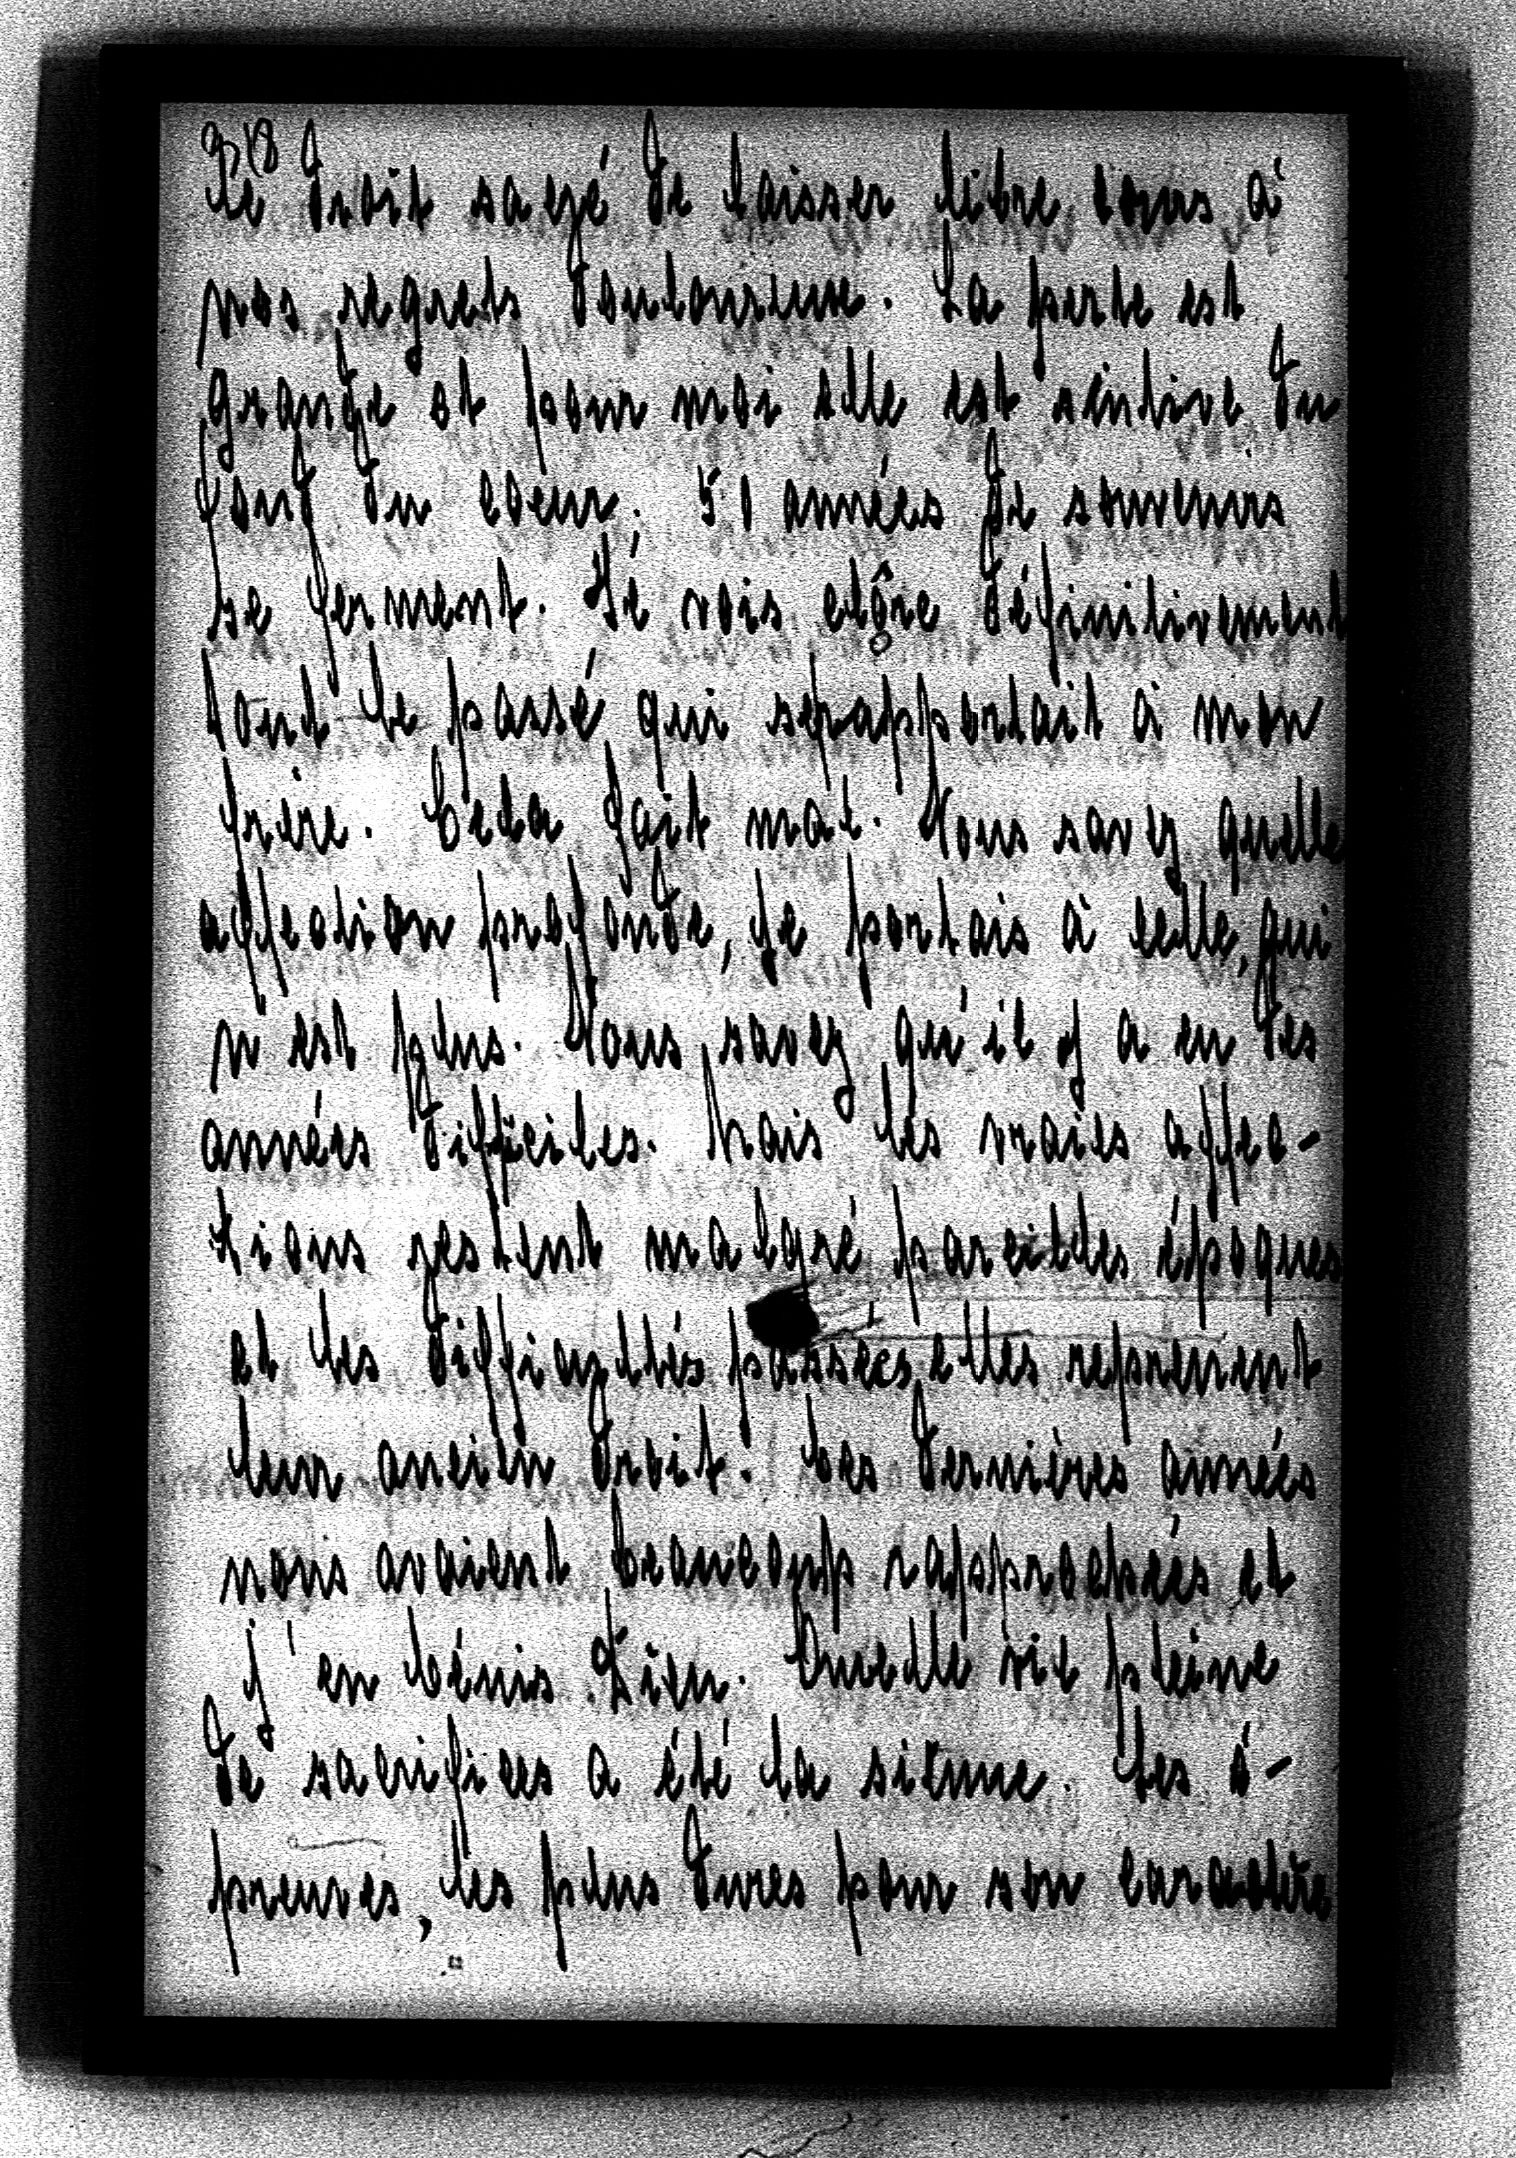 le droit sacré de laisser libre cours à
nos regrets douloureux. La perte est
grande et pour moi elle est sentive du
fond du coeur. 50 années de souvenirs
se ferment. Je vois clôre définitivement
tout le passé qui se rapportait à mon
frère. Cela fait mal. Vous savez quelle
affection profonde, je portais à celle, qui
n'est plus. Vous savez qu'il y a eu des
années difficiles. Mais les vraies affec-
tions restent malgré pareilles époques
et les difficultés passées elles reprennent
leur ancien droit. Les dernières années
nous avaient beaucoup rapprochées et
j'en bénis Dieu. Quelle vie pleine
de sacrifices a été la sienne. Les é-
preuves, les plus dures pour son caractère